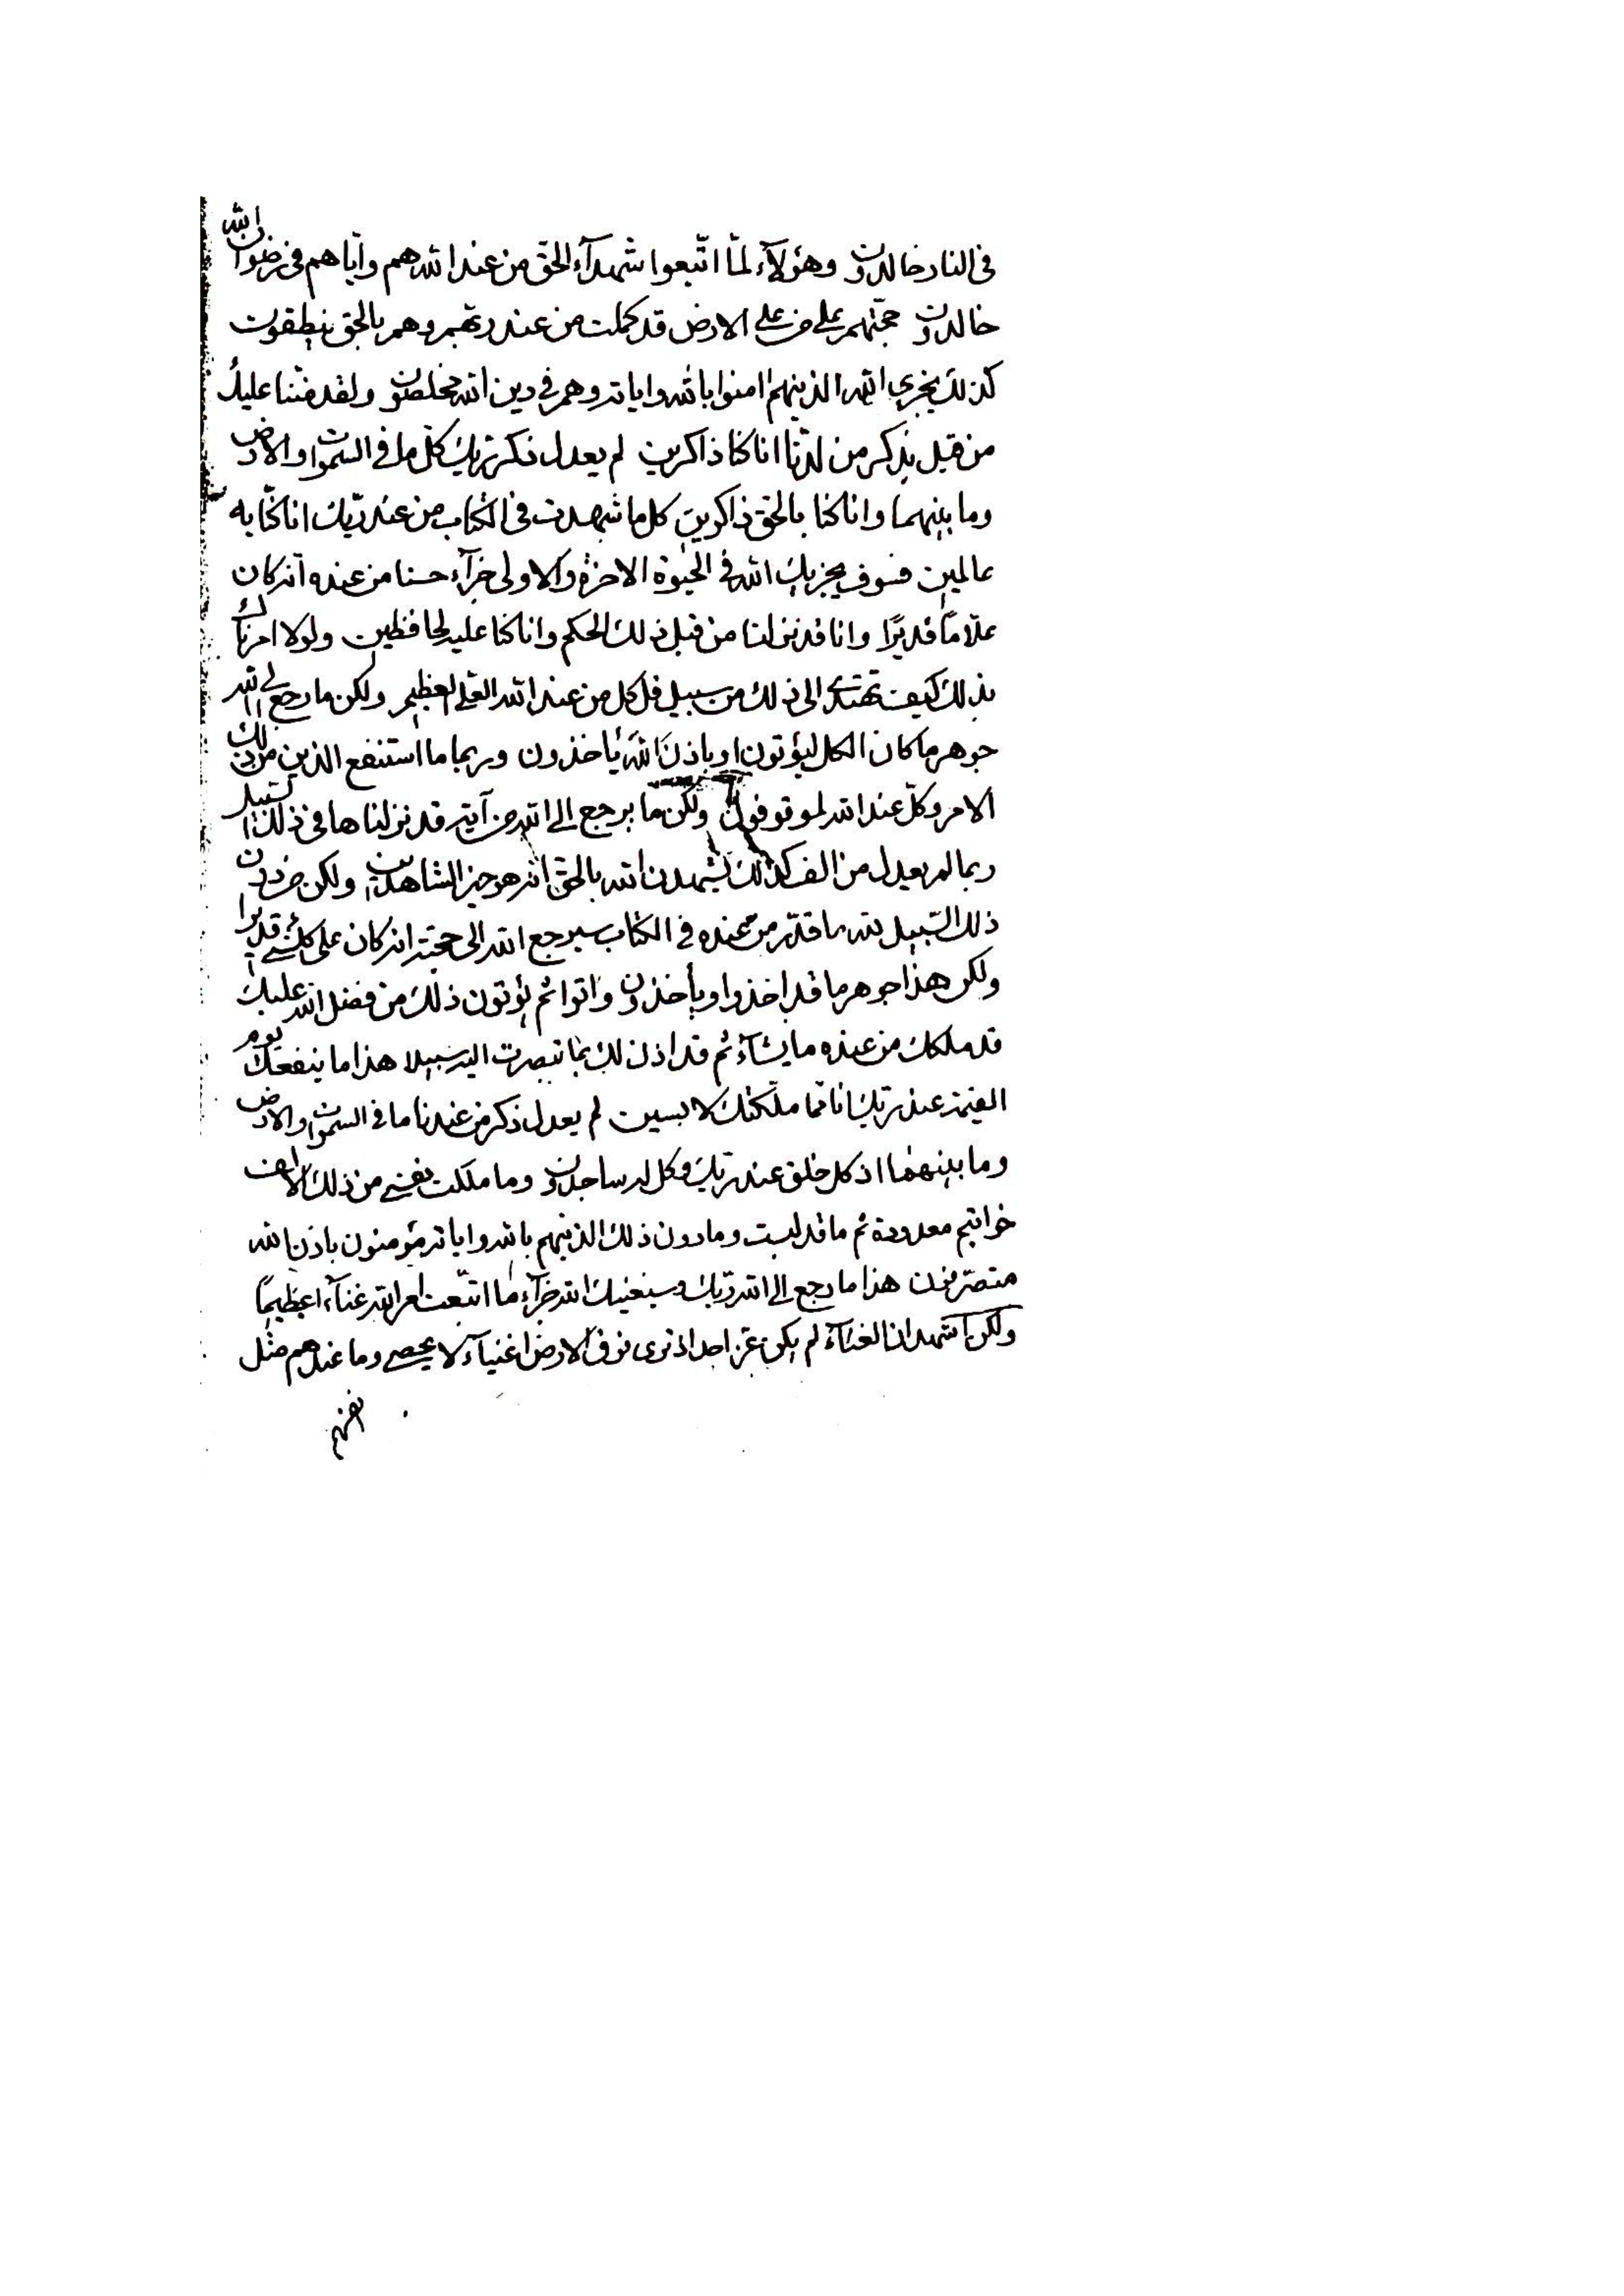 فی النار خالدون وهؤلآء لمّا اتّبعوا شهدآء الحقّ من عند الله هم وایّاهم فی رضوان الله
خالدون حجّتهم علی من علی الارض قد کملت من عند ربّهم وهم بالحق ینطقون
کذلک یجزی الله الذینهم امنوا بالله وایاته وهم فی دین الله مخلصون ولقد مننّا علیک
من قبل بذکر من لدنّا انا کنّا ذاکرین لم یعدل ذکر ربّک کلّ ما فی السموات والارض
وما بینهما وانا کنا بالحق ذاکرین کل ما شهدت فی الکتاب من عند ربّک انا کنّا به
عالمین فسوف یجزیک الله فی الحیوة الاخرة والاولی جزآء حسنا من عنده انه کان
علّاما قدیرًا وانا قد نزلنا من قبل ذلک الحکم وانا کنا علیه لحافظین ولولا امرناک
بذلک کیف تهتدی الی ذلک من سبیل قل کل من عند الله العلی العظیم ولکن ما رجع الی الله
جوهر ما کان الکل لیؤتون او باذن الله یاخذون وربما ما استنفع الذین من دون ذلک
الامر وکلّ عند الله لموقوفون ولکن ما یرجع الی الله من آیة قد نزلناها فی ذلک السبیل
ربما لم یعدل من الف کذلک لیشهدن الله بالحق انه هو خیر الشاهدین ولکن من دون
ذلک السّبیل لله ما قدّر من عنده فی الکتاب سیرجع الله الی حجته انه کان علی کل شیء قدیرا
ولکن هذا جوهر ما قد اخذوا ویأخذون واتوا ثم یؤتون ذلک من فضل الله علیک
قد ملکک من عنده ما یشآء ثم قد اذن لک بما تبصرت الیه سبیلا هذا ما ینفعک یوم
القیمة عند ربّک انا ممّا ملّکناک لا بسین لم یعدل ذکر من عندنا ما فی السموات والارض
وما بینهما اذ کل خلق عند ربّک وکل له ساجدون وما ملکت نفسی من ذلک الالف
خواتیم معدودة ثم ما قد لبست وما دون ذلک الذینهم بالله وایاته مؤمنون باذن الله
متصرّفون هذا ما رجع الی الله ربّک وسیغنیک الله جزآء ما اتّبعت امر الله غنآء عظیمًا
ولکن اشهد ان الغنآء لم یکن عز احد اذ تری فوق الارض اغنیآء لا یحصی وما عندهم مثل
نفسهم